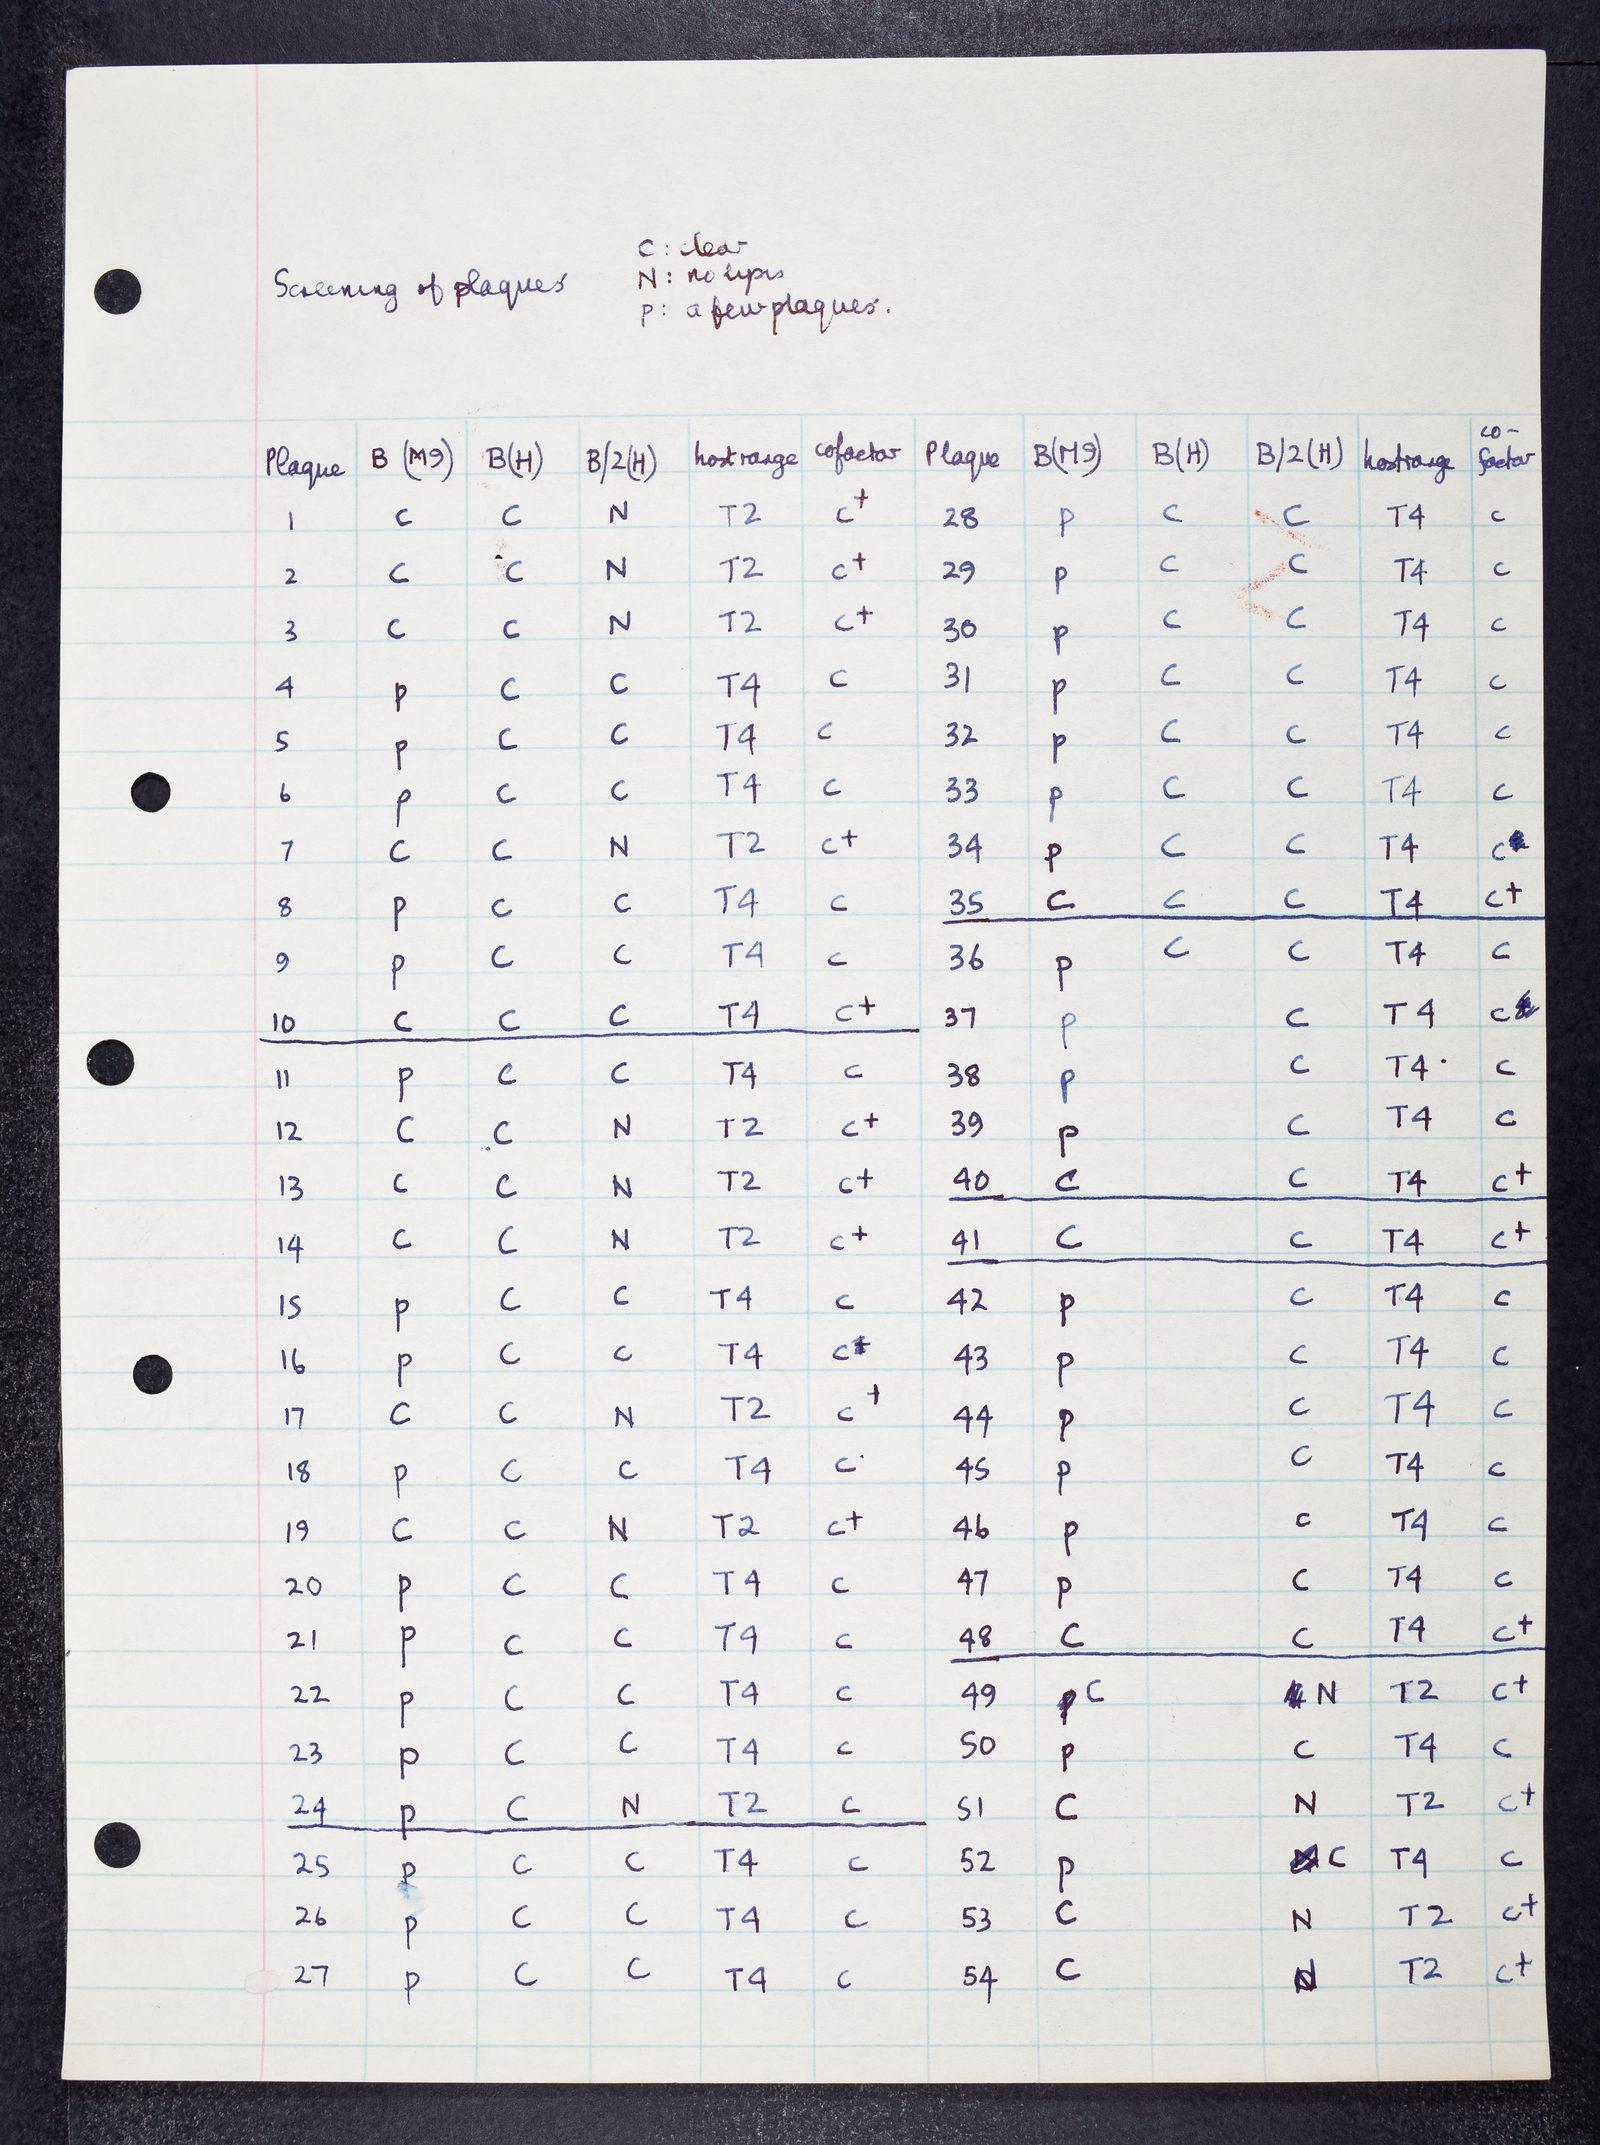 C : clear
Screening of plaques
N : no lysis
p : a few plaques.
Plaque B (M9) B(H) B/2(H) hostrange cofactor Plaque B(M9) B(H) B/2(H) hostrange co-factor
1 C C N T2 c+ 28 p C C T4 c
2 C C N T2 c+ 29 p C C T4 c
3 C C N T2 c+ 30 p C C T4 c
4 p C C T4 c 31 p C C T4 c
5 p C C T4 c 32 p C C T4 c
6 p C C T4 c 33 p C C T4 c
7 C C N T2 c+ 34 p C C T4 c
8 p C C T4 c 35 C C C T4 c+
9 p C C T4 c 36 p C C T4 c
10 C C C T4 c+ 37 p C T4 c
11 p C C T4 c 38 p C T4 c
12 C C N T2 c+ 39 p C T4 c
13 C C N T2 c+ 40 C C T4 c+
14 C C N T2 c+ 41 C C T4 c+
15 p C C T4 c 42 p C T4 c
16 p C C T4 c 43 p C T4 c
17 C C N T2 c+ 44 p C T4 c
18 p C C T4 c 45 p C T4 c
19 C C N T2 c+ 46 p C T4 c
20 p C C T4 c 47 p C T4 c
21 p C C T4 c 48 C C T4 c+
22 p C C T4 c 49 C N T2 c+
23 p C C T4 c 50 p C T4 c
24 p C N T2 c 51 C N T2 c+
25 p C C T4 c 52 p C T4 c
26 p C C T4 c 53 C N T2 c+
27 p C C T4 c 54 C N T2 c+